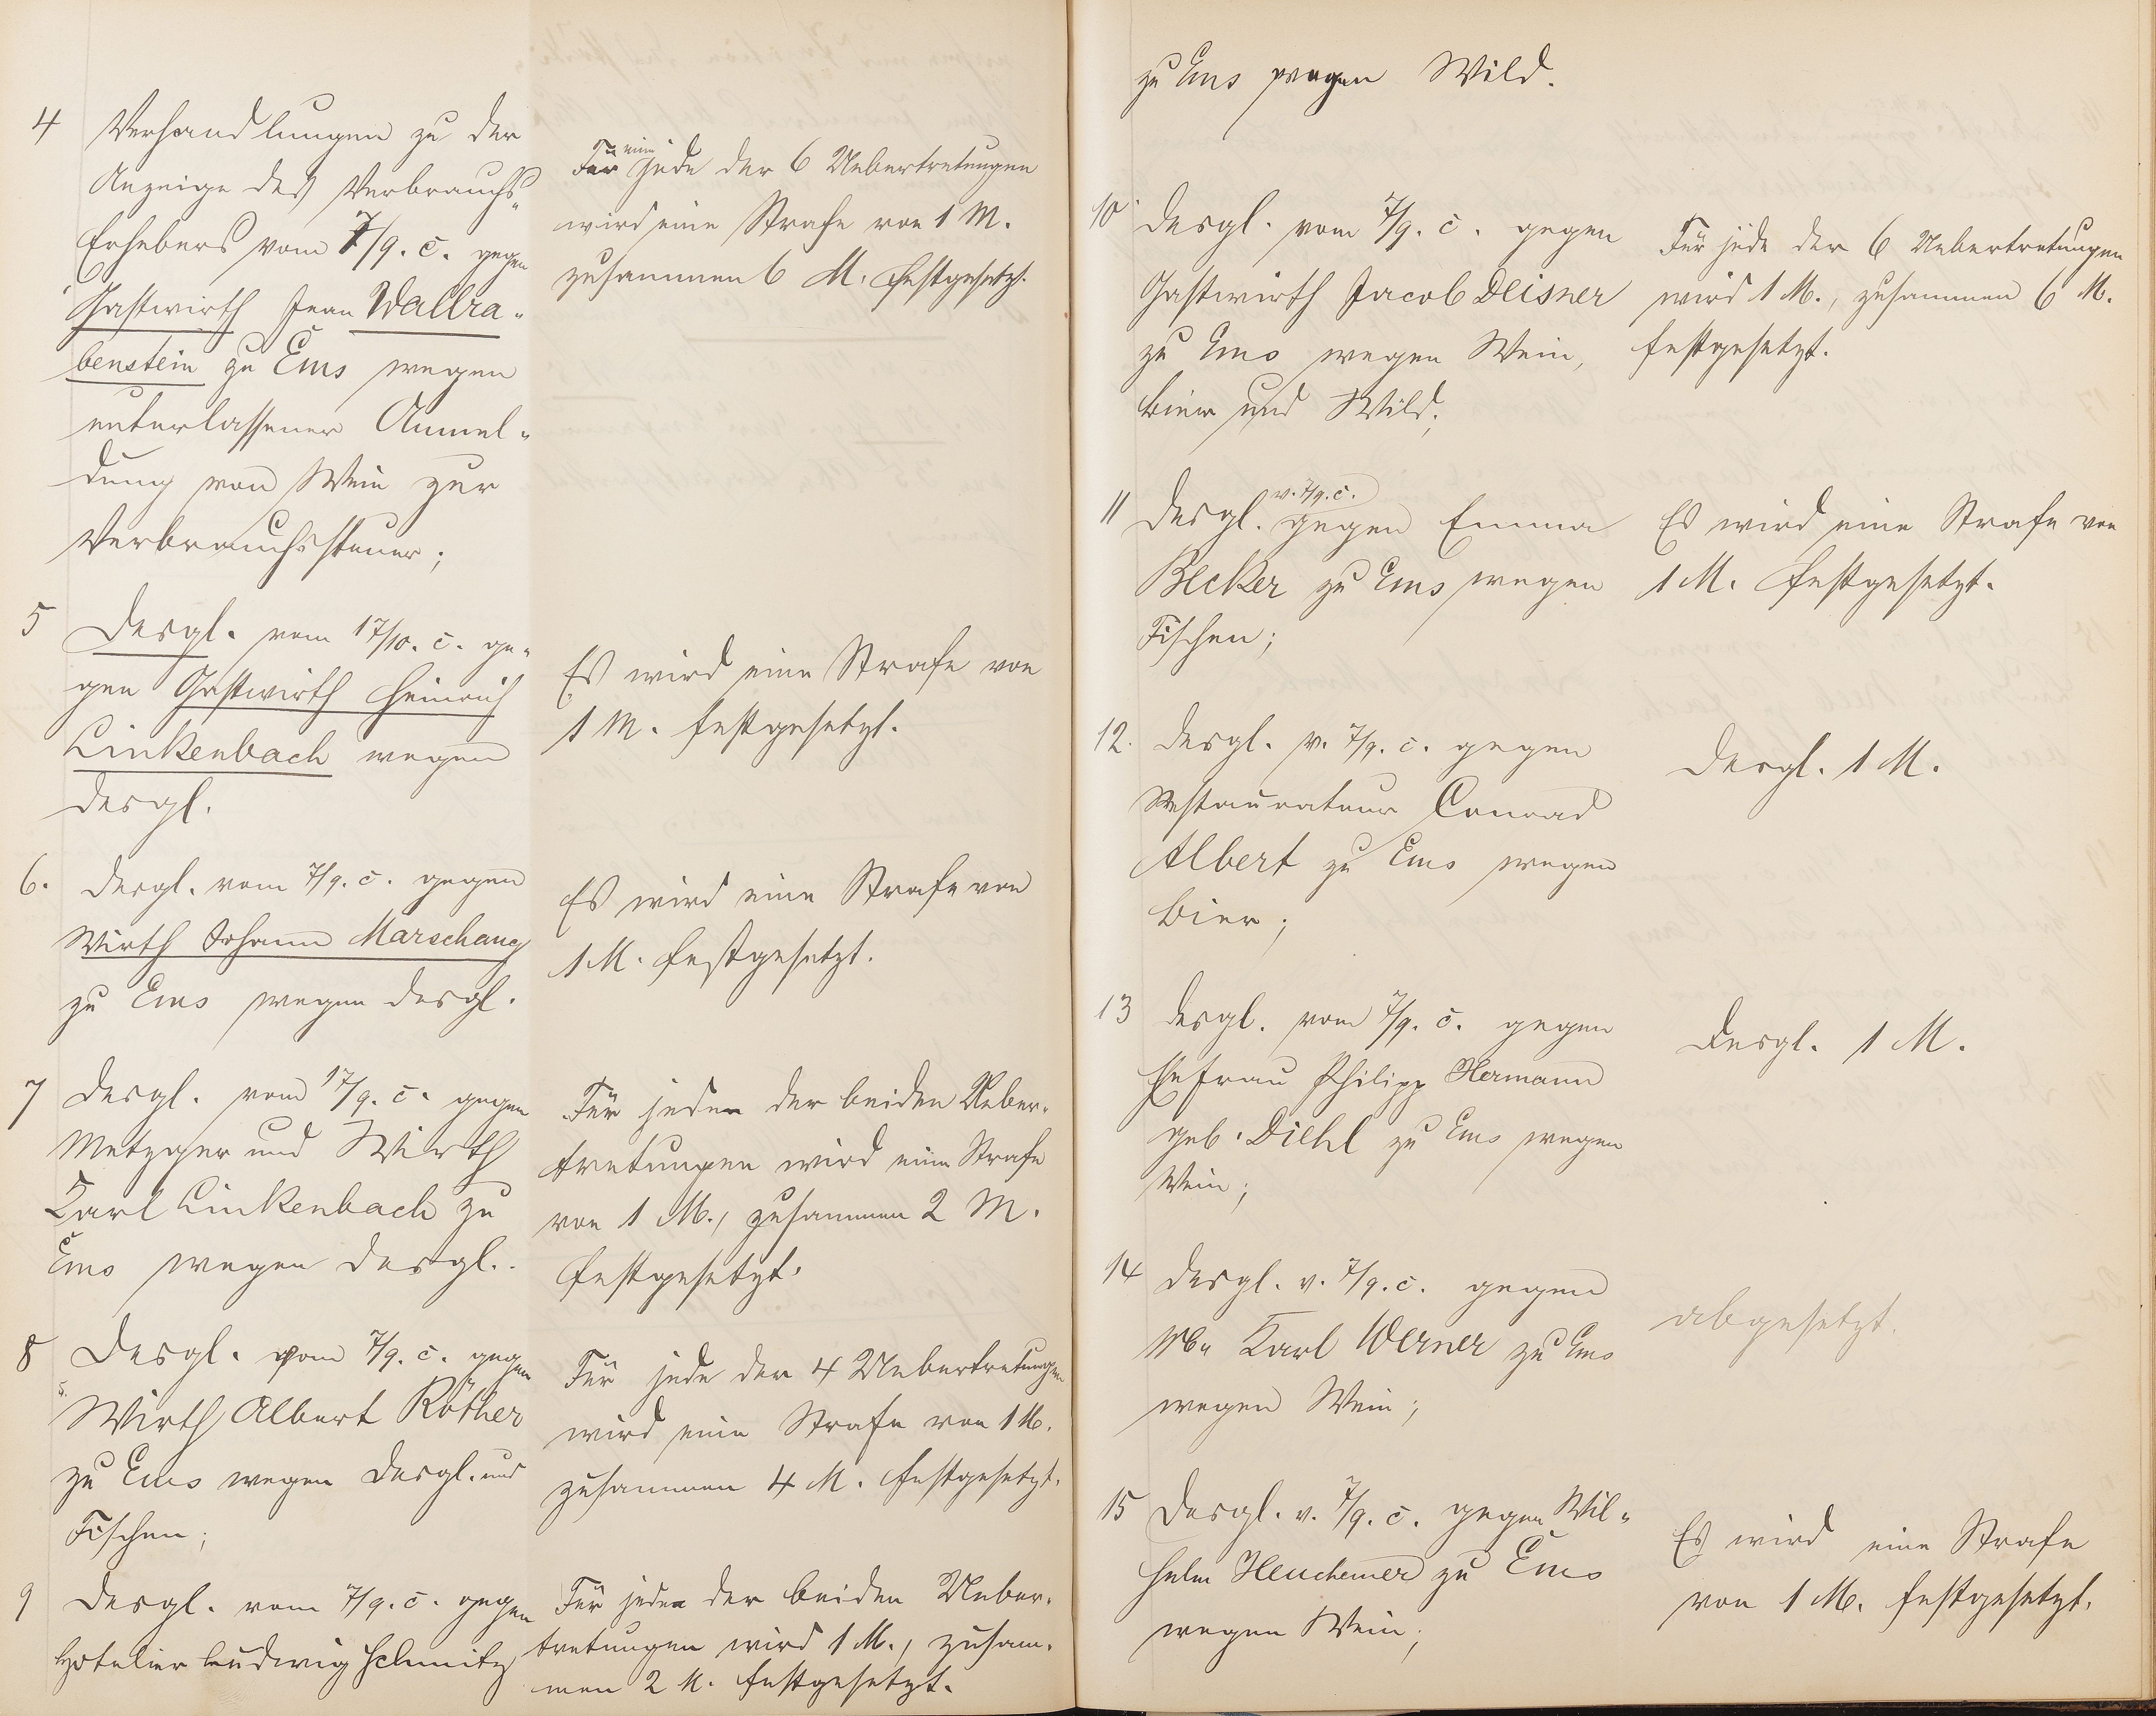 4 Verhandlungen zu der
Anzeige des Verbrauchs-
Erhebers vom 7/9. c. gegen
Gastwirth Jean Wallra-
benstein zu Ems wegen
unterlassener Anmel-
dung von Wein zur
Verbrauchssteuer;
Für jede der 6 Uebertretungen
wird eine Strafe von 1 M.
zusammen 6 M. festgesetzt.
5 Desgl. vom 17/10. c. ge-
gen Gastwirth Heinrich
Linkenbach wegen
desgl.
Es wird eine Strafe von
1 M. festgesetzt.
6. Desgl. vom 7/9. c. gegen
Wirth Johann Marschang
zu Ems wegen desgl.
Es wird eine Strafe von
1 M. festgesetzt.
7 Desgl. vom 17/9. c. gegen
Metzger und Wirth
Karl Linkenbach zu
Ems wegen desgl.
Für jede der beiden Ueber-
tretungen wird eine Strafe
von 1 M., zusammen 2 M.
festgesetzt.
8 Desgl. vom 7/9. c. gegen
Wirth Albert Röther
zu Ems wegen desgl. und
Fischen;
Für jede der 4 Uebertretungen
wird eine Strafe von 1 M.
zusammen 4 M. festgesetzt.
9 Desgl. vom 7/9. c. gegen
Hotelier Ludwig Schmitz
Für jede der beiden Ueber-
tretungen wird 1 M., zusam-
men 2 M. festgesetzt.
zu Ems wegen Wild.
10. Desgl. vom 7/9. c. gegen
Gastwirth Jacob Deisner
zu Ems wegen Wein,
Bier und Wild;
Für jede der 6 Uebertretungen
wird 1 M., zusammen 6 M.
festgesetzt.
v. 7/9. c.
11 Desgl. gegen Emma
Becker zu Ems wegen
Fischen;
Es wird eine Strafe von
1 M. festgesetzt.
12. Desgl. v. 7/9. c. gegen
Restaurateur Conrad
Albert zu Ems wegen
Bier;
Desgl. 1 M.
13 Desgl. vom 7/9. c. gegen
Ehefrau Philipp Hermann
geb. Diehl zu Ems wegen
Wein;
Desgl. 1 M.
14 Desgl. v. 7/9. c. gegen
Karl Werner zu Ems
wegen Wein;
abgesetzt.
15 Desgl. v. 7/9. c. gegen Wil-
helm Heuchemer zu Ems
wegen Wein;
Es wird eine Strafe
von 1 M. festgesetzt.